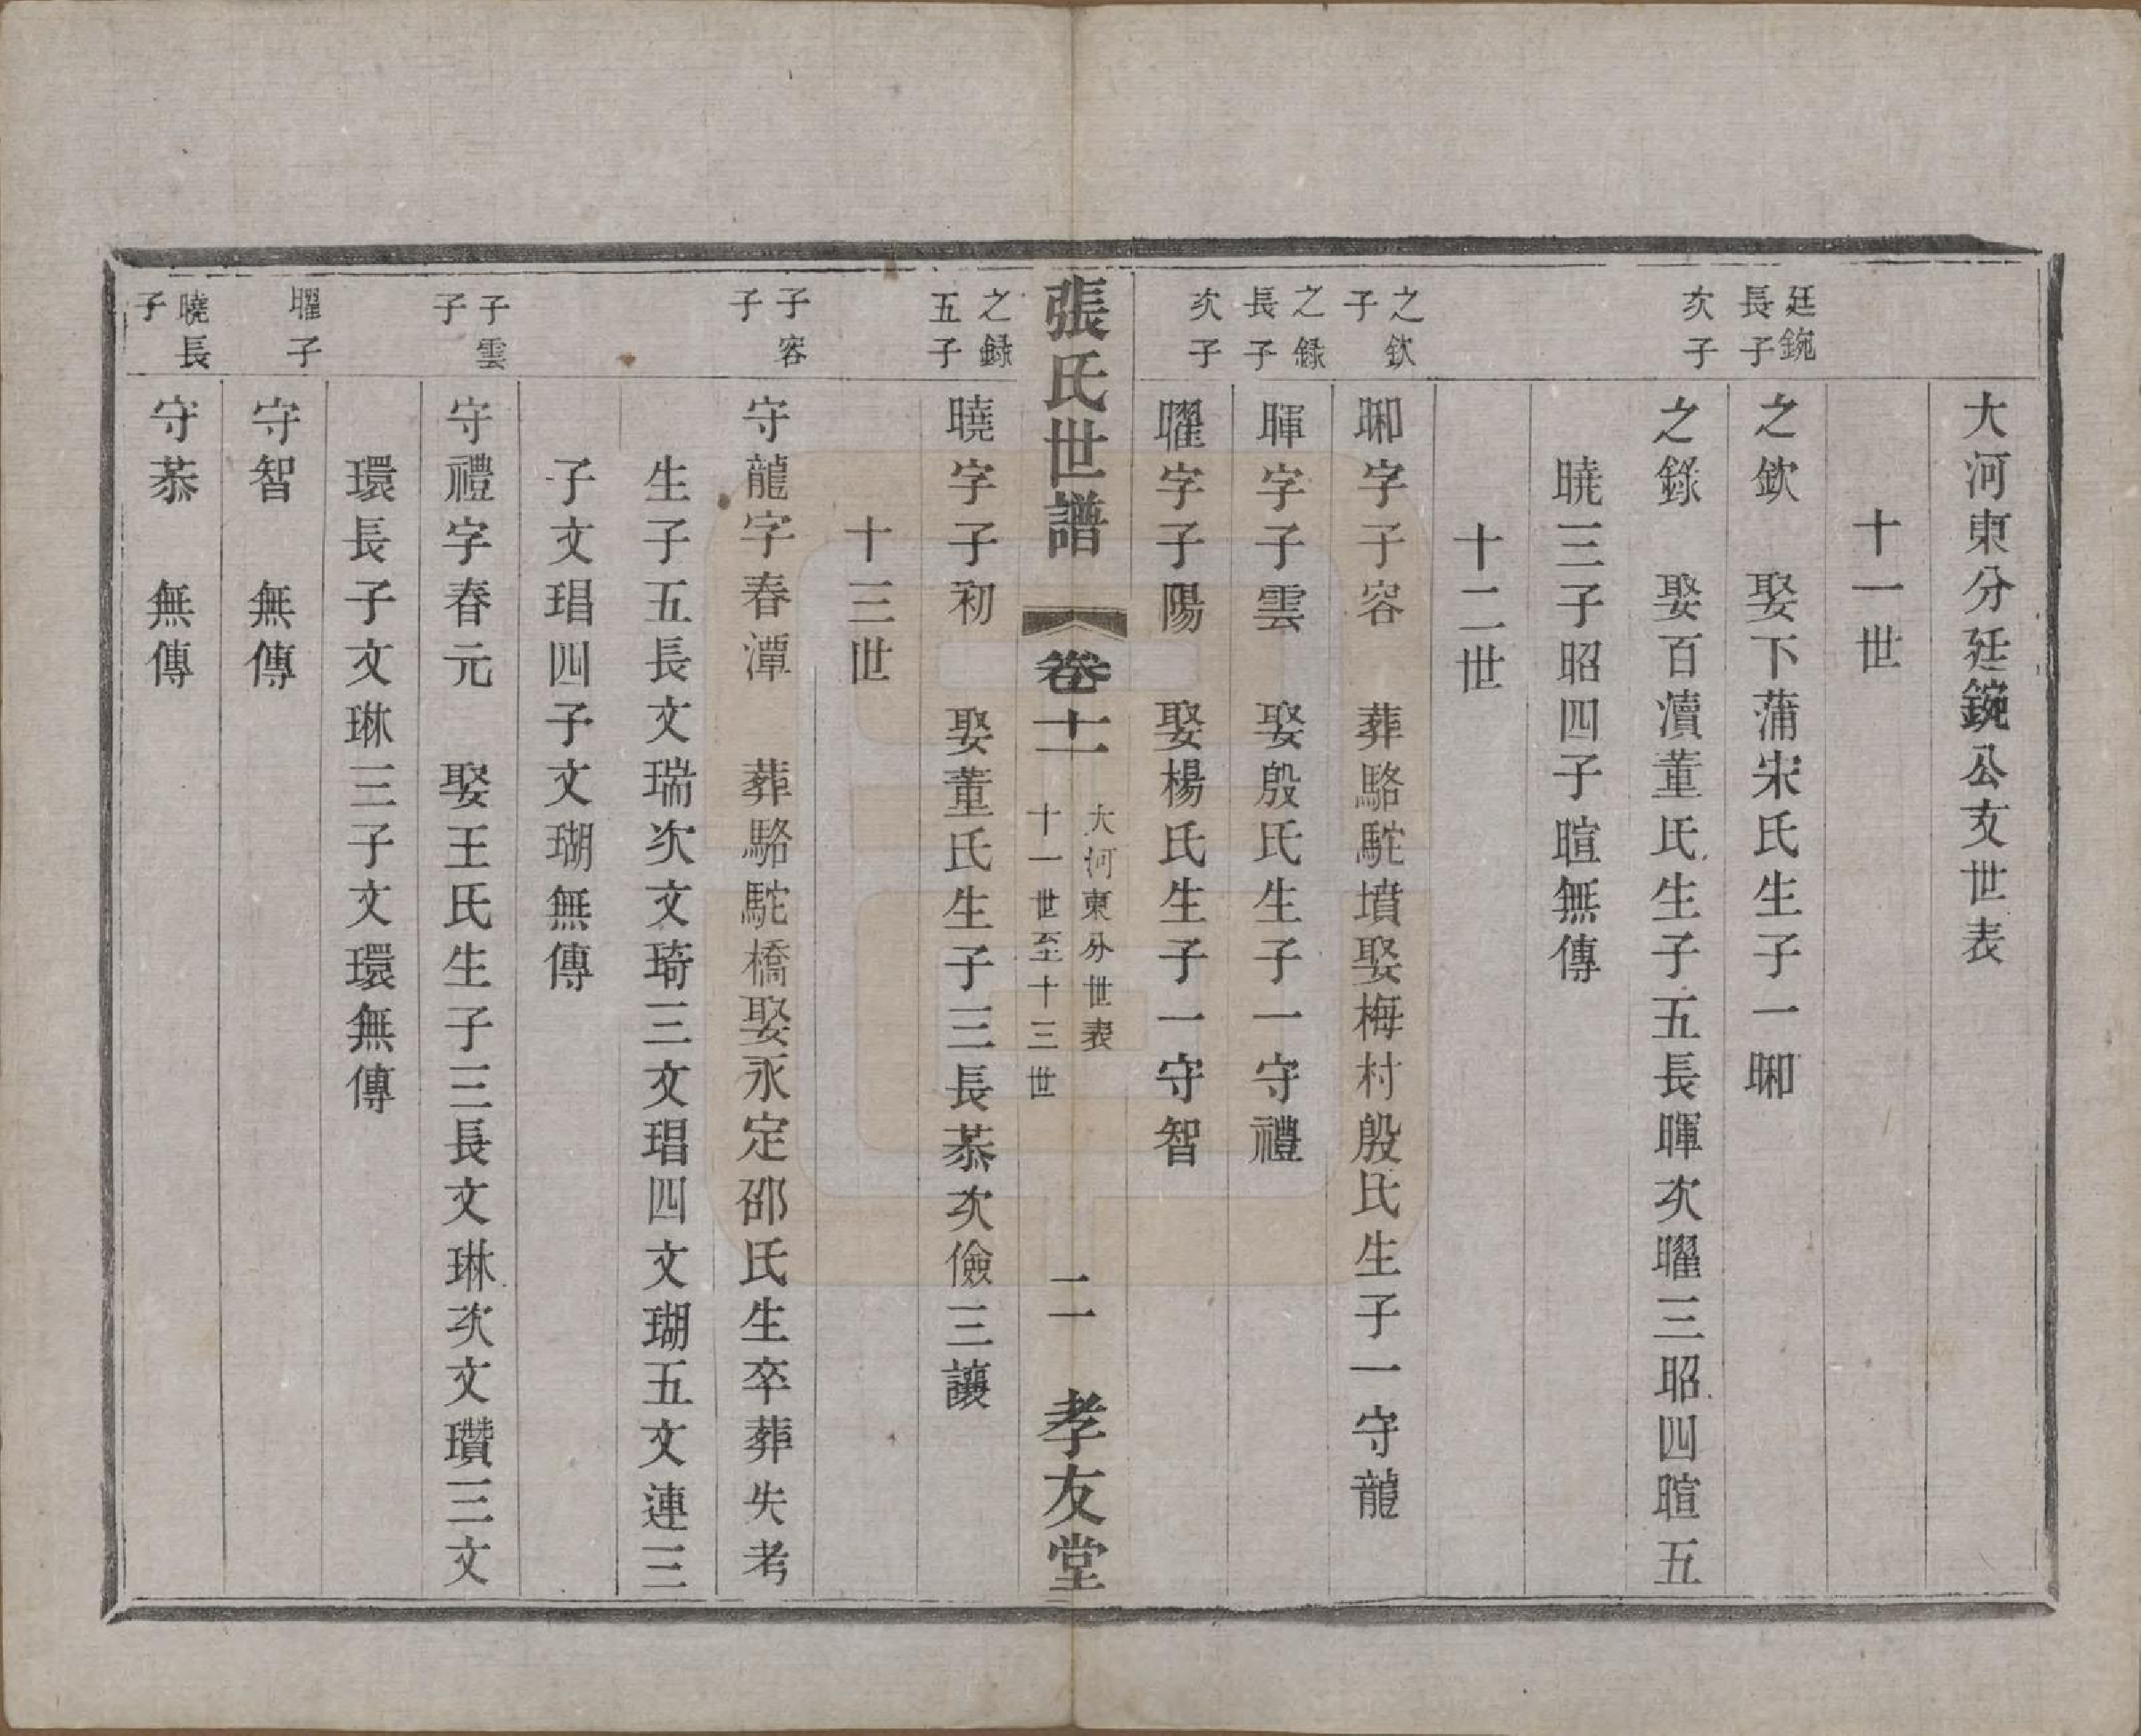 大河東分廷鋺公支世表
十一世
廷鋺長子
之欽　娶下蒲宋氏生子一㫾
次子
之錄　娶百瀆董氏生子五長暉次曜三昭四暄五
曉三子昭四子暄無傳
十二世
之欽子
㫾字子容　葬駱駝墳娶梅村殷氏生子一守龍
之錄長子
暉字子雲　娶殷氏生子一守禮
次子
曜字子陽　娶楊氏生子一守智
張氏世譜　卷十一　大河東分世表　十一世至十三世　二一　孝友堂
之錄五子
曉字子初　娶董氏生子三長恭次儉三讓
十三世
子容子
守龍字春潭　葬駱駝橋娶永定邵氏生卒葬失考
生子五長文瑞次文琦三文琩四文瑚五文連三
子文琩四子文瑚無傳
子雲子
守禮字春元　娶王氏生子三長文琳次文瓚三文
環長子文琳三子文環無傳
曜子
守智　無傳
曉長子
守恭　無傳